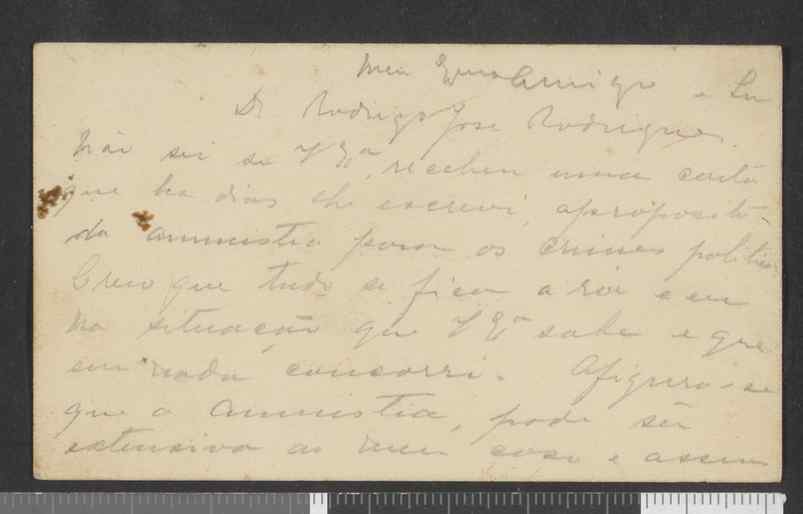 Meu Exmo Amigo e Sr.
Dr Rodrigo José Rodrigues
Não sei se V Exª, recebeu uma carta
que ha dias lhe escrevi, apropósito
da amnistia para os crimes politicos
Creio que tudo se fica a rir e eu
na situação que V Exª sabe e que
em nada concorri. Afigura-se
que a amnistia, pode ser
extensiva ao meu caso e assim